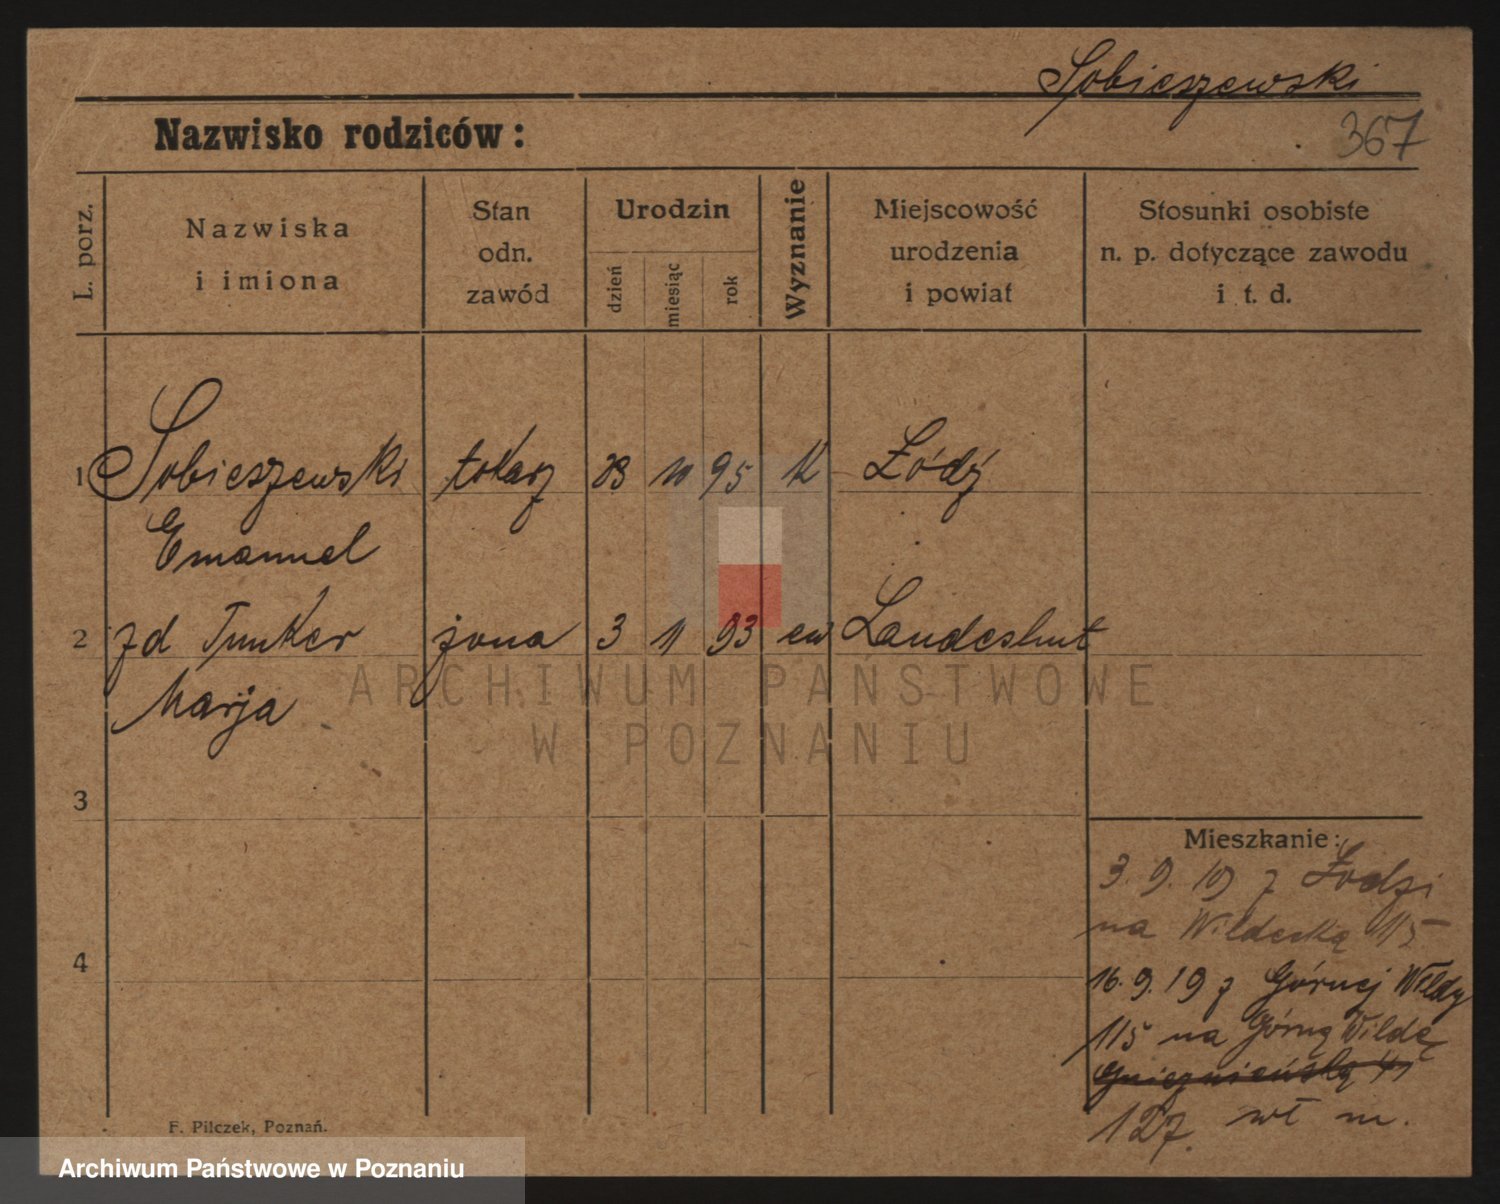 Sobieszewski
367
Nazwisko rodziców:
L. porz.
Nazwiska
i imiona
Stan
odn.
zawód
Urodzin
dzień
miesiąc
rok
Wyznanie
Miejscowość
urodzenia
i powiat
Stosunki osobiste
n. p. dotyczące zawodu
i t. d.
1 Sobieszewski tokarz 28 10 95 K Łódź
Emanuel
2 zd Junker żona 3 11 93 ew Landeshut
Marja
3
4
Mieszkanie:
3. 9. 19 z Łodzi
na Wildecką 115
16. 9. 19 z Górnej Wildy
115 na Górną Wildę
Gnieznieńską 41
127. wł m.
F. Pilczek, Poznań.
ARCHIWUM PAŃSTWOWE
W POZNANIU
Archiwum Państwowe w Poznaniu